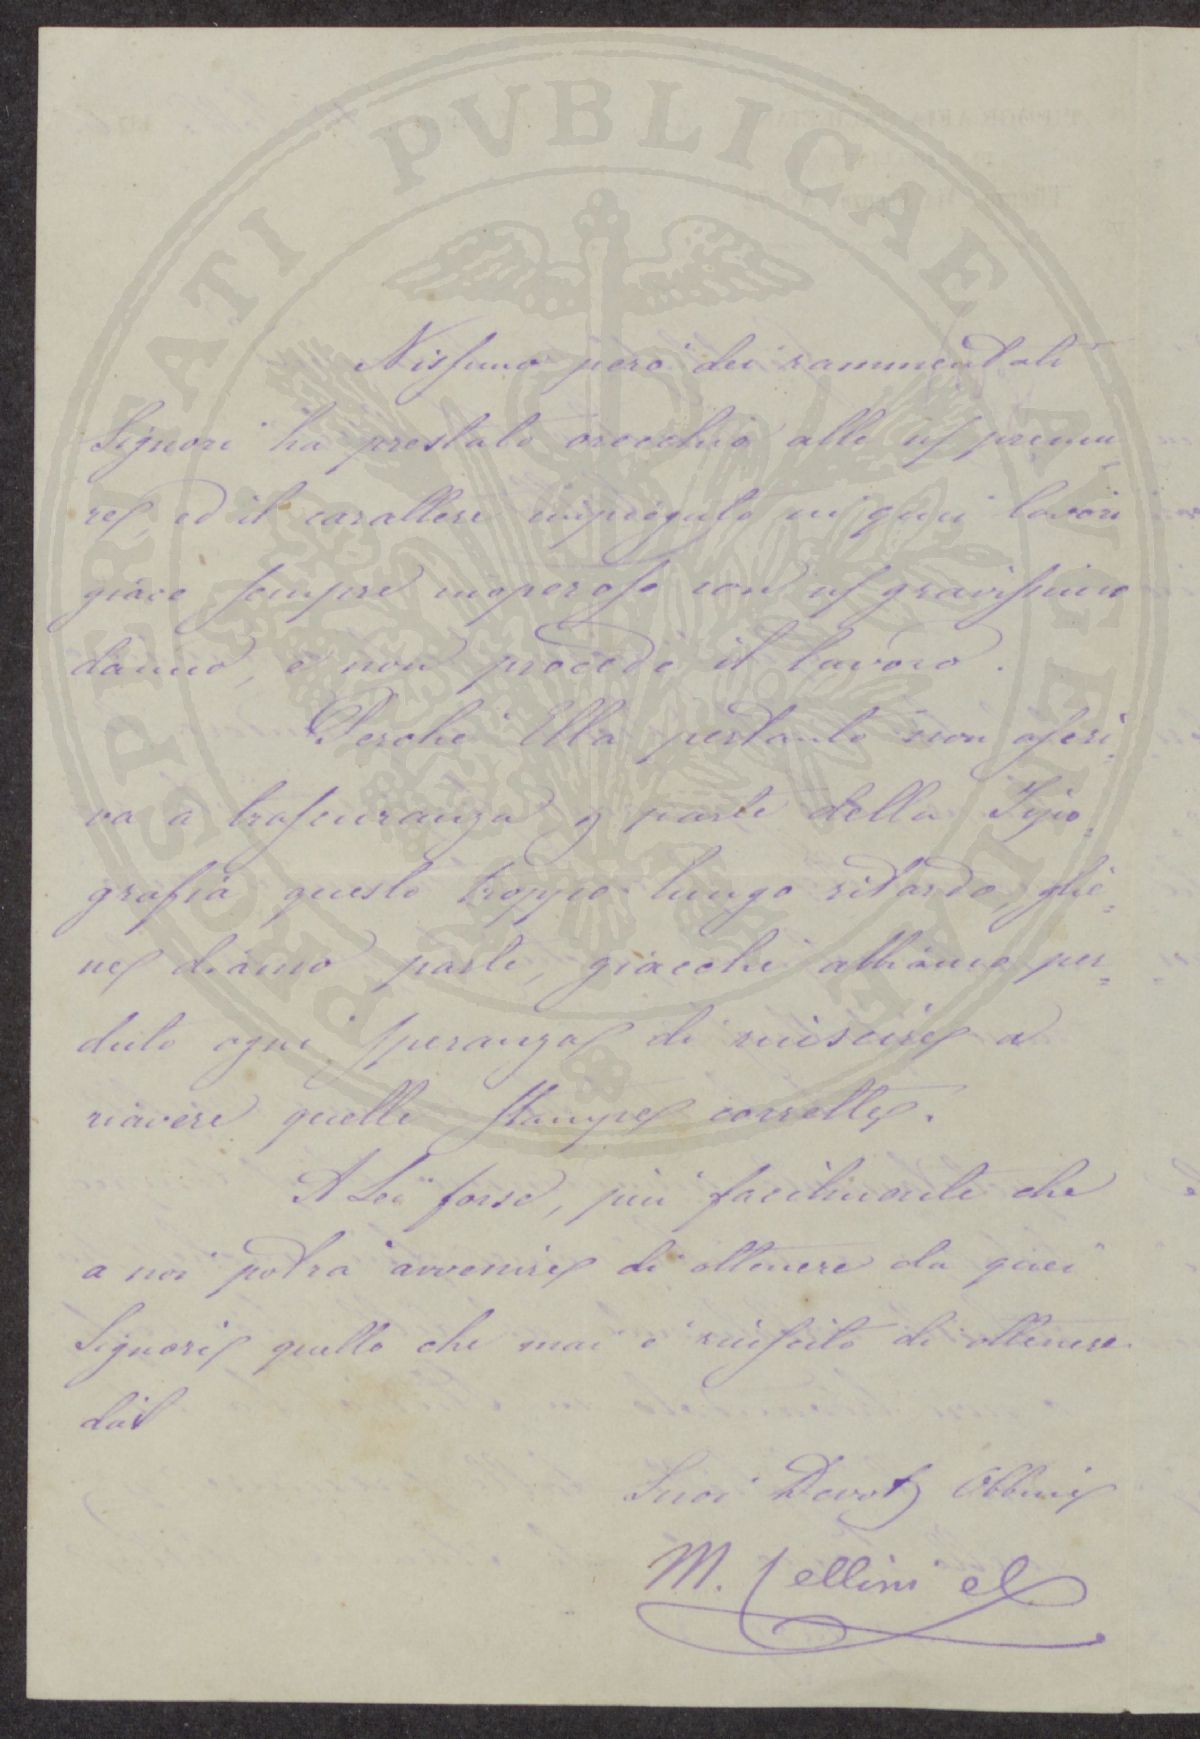 PROSPERITATI PVBLICAE AVGENDAE
Nissuno però dei rammentati
Signori ha prestato orecchio alle ns premu-
re, ed il carattere impiegato in quei lavori
giace sempre inoperoso con ns gravissimo
danno, e non procede il lavoro.
Perchè Ella pertanto non ascri-
va a trascuranza p parte della Tipo-
grafia questo troppo lungo ritardo, glie-
ne diamo parte, giacchè abbiamo per-
duto ogni speranza di riuscire a
riavere quelle stampe corrette.
A Lei forse, più facilmente che
a noi potrà avvenire di ottenere da quei
Signori quello che mai è riuscito di ottenere
dai
Suoi Devoti Obbmi
M. Cellini e C.